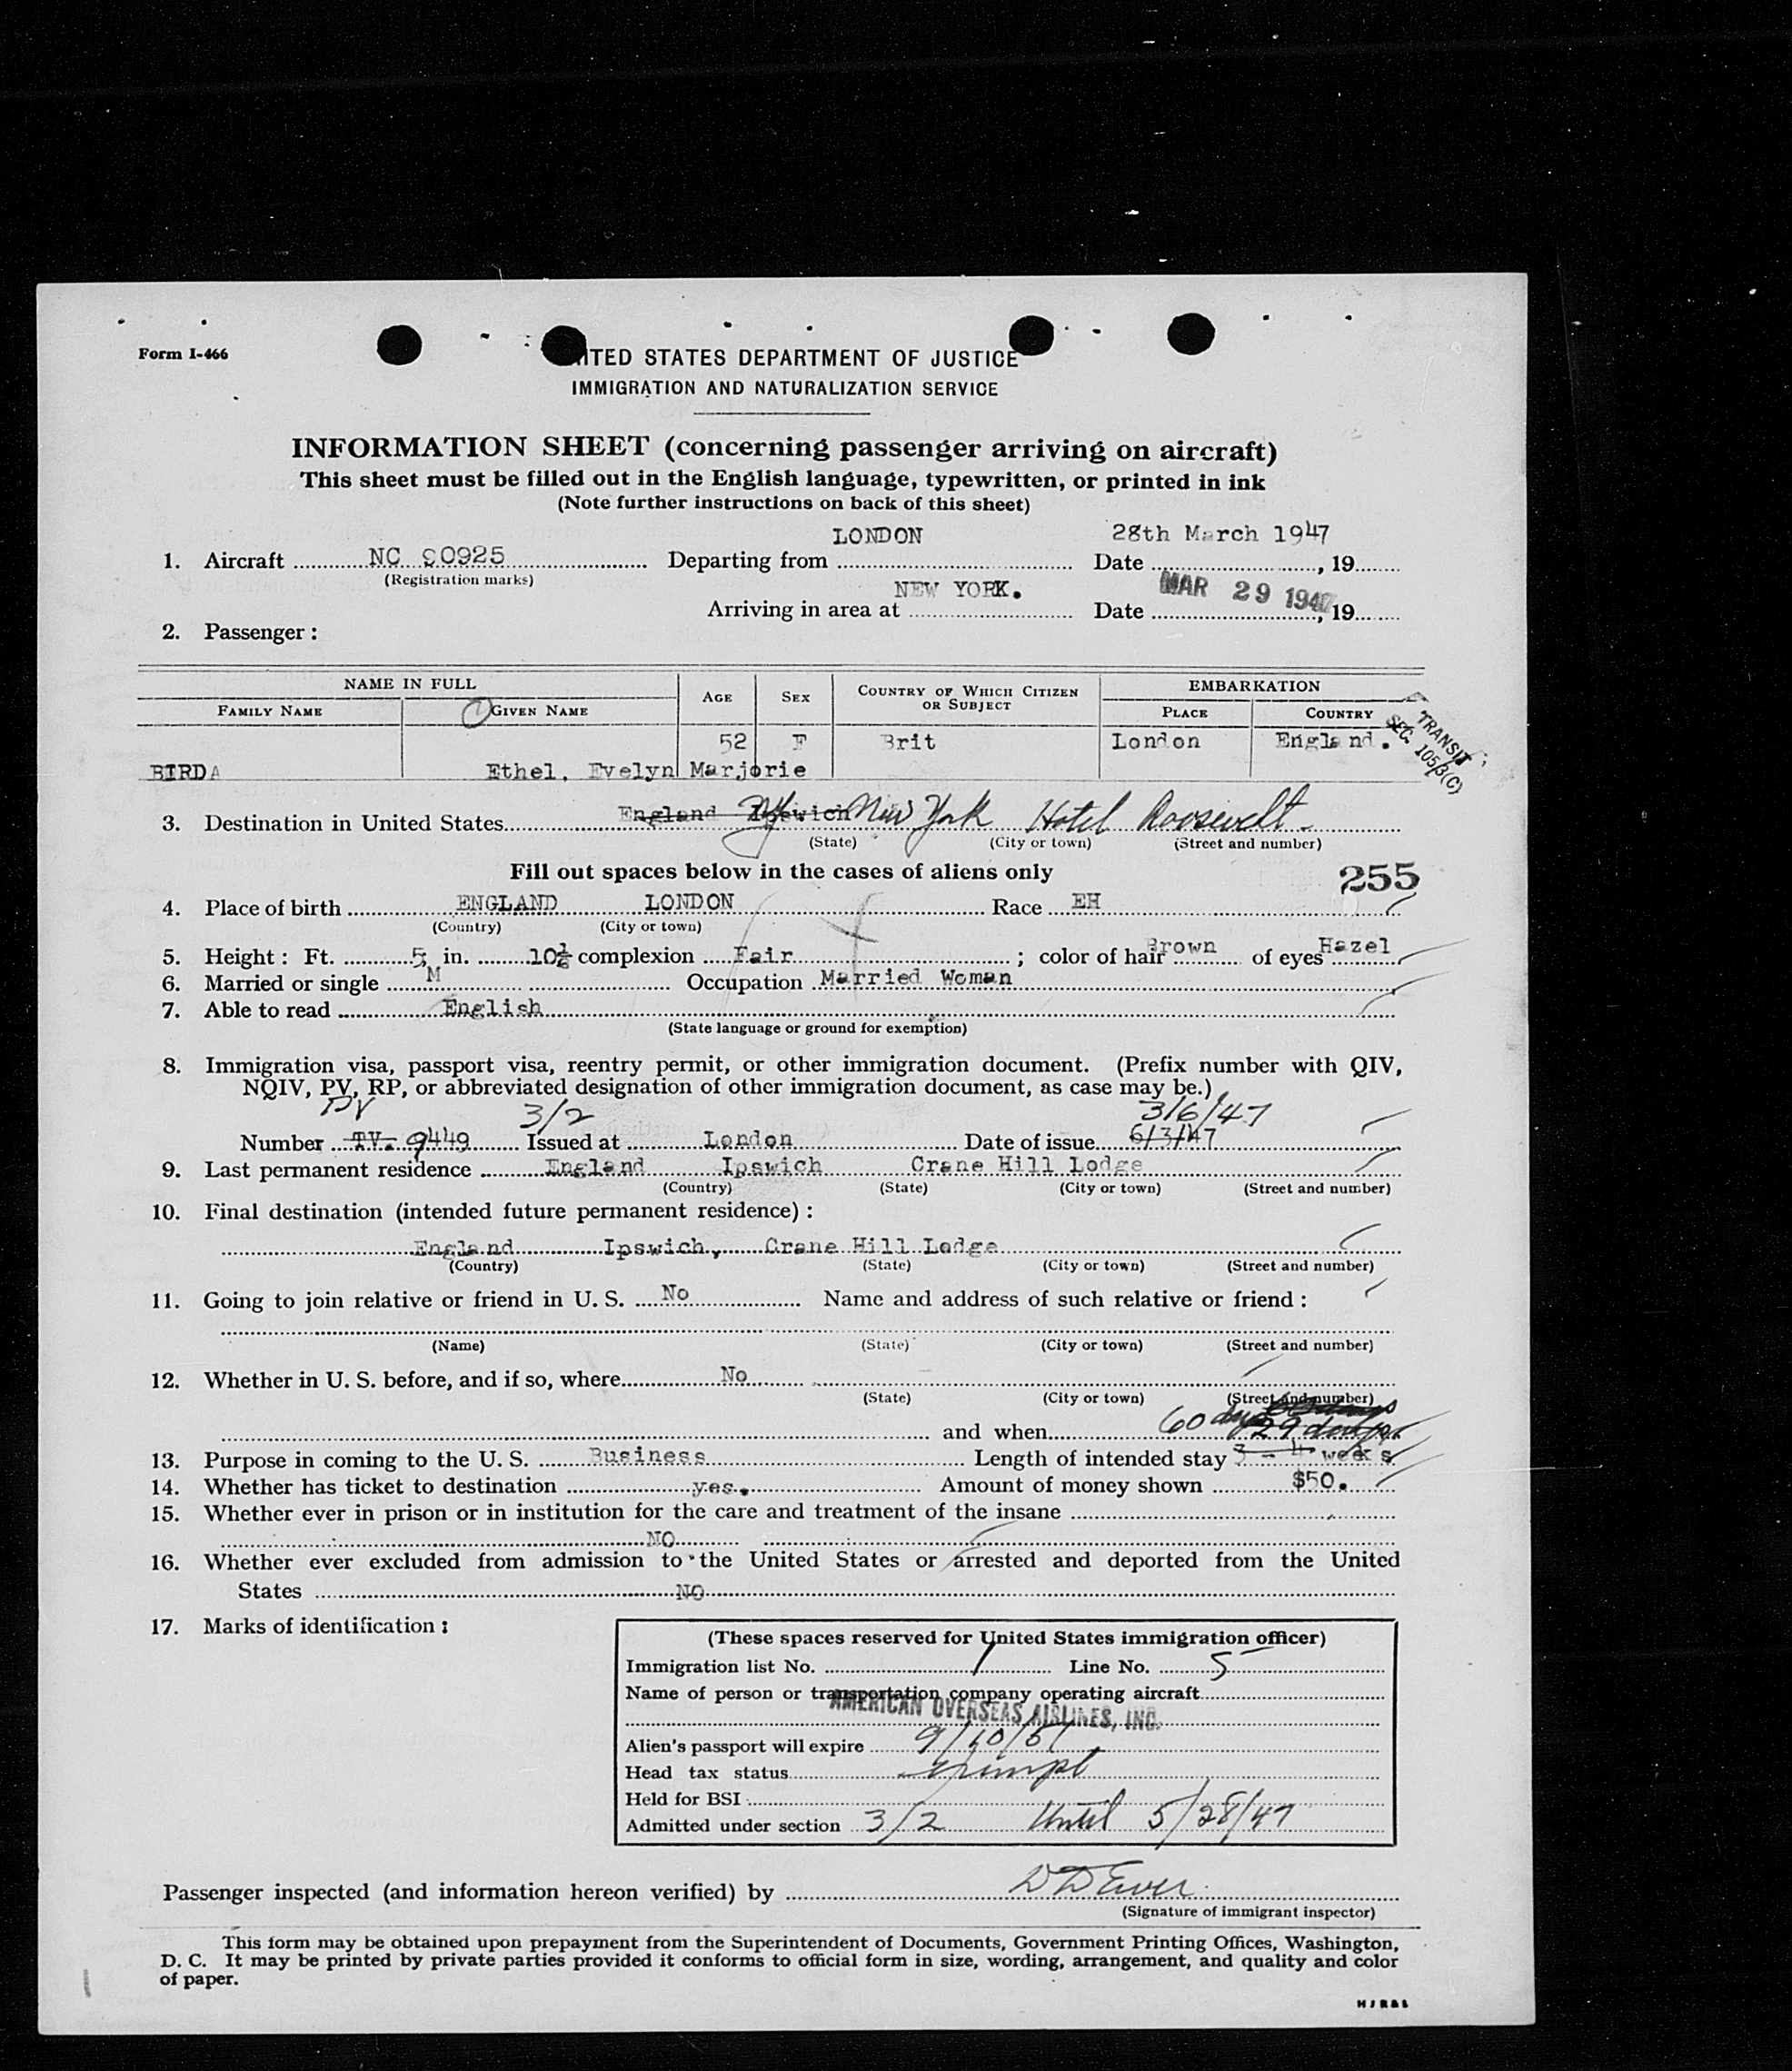 Form I-466
ITED STATES DEPARTMENT OF JUSTICE
IMMIGRATION AND NATURALIZATION SERVICE
INFORMATION SHEET (concerning passenger arriving on aircraft)
This sheet must be filled out in the English language, typewritten, or printed in ink
(Note further instructions on back of this sheet)
LONDON 28th March 1947
1. Aircraft NC 90925 Departing from Date , 19
(Registration marks)
NEW YORK. MAR 29 1947
Arriving in area at Date , 19
2. Passenger :
NAME IN FULL AGE SEX COUNTRY OF WHICH CITIZEN OR SUBJECT EMBARKATION
FAMILY NAME GIVEN NAME PLACE COUNTRY
TRANSIT
SEC. 105/3(C)
52 F Brit London England.
BIRDA Ethel, Evelyn Marjorie
3. Destination in United States England Ipswich NY New York Hotel Roosevelt
(State) (City or town) (Street and number)
Fill out spaces below in the cases of aliens only 255
4. Place of birth ENGLAND LONDON Race EH
(Country) (City or town)
5. Height : Ft. 5 in. 10½ complexion Fair ; color of hair Brown of eyes Hazel
6. Married or single M Occupation Married Woman
7. Able to read English
(State language or ground for exemption)
8. Immigration visa, passport visa, reentry permit, or other immigration document. (Prefix number with QIV,
NQIV, PV, RP, or abbreviated designation of other immigration document, as case may be.)
PV 3/2 3/6/47
Number TV. 9449 Issued at London Date of issue 6/3/47
9. Last permanent residence England Ipswich Crane Hill Lodge
(Country) (State) (City or town) (Street and number)
10. Final destination (intended future permanent residence) :
England Ipswich, Crane Hill Lodge
(Country) (State) (City or town) (Street and number)
11. Going to join relative or friend in U. S. No Name and address of such relative or friend :
(Name) (State) (City or town) (Street and number)
12. Whether in U. S. before, and if so, where No
(State) (City or town) (Street and number)
and when 60 days 29 days
13. Purpose in coming to the U. S. Business Length of intended stay 3 - 4 weeks
14. Whether has ticket to destination yes. Amount of money shown $50.
15. Whether ever in prison or in institution for the care and treatment of the insane
NO
16. Whether ever excluded from admission to the United States or arrested and deported from the United
States NO
17. Marks of identification :
(These spaces reserved for United States immigration officer)
Immigration list No. 1 Line No. 5
Name of person or transportation company operating aircraft
AMERICAN OVERSEAS AIRLINES, INC.
Alien's passport will expire 9/10/51
Head tax status exempt
Held for BSI
Admitted under section 3/2 Until 5/28/47
Passenger inspected (and information hereon verified) by
(Signature of immigrant inspector)
This form may be obtained upon prepayment from the Superintendent of Documents, Government Printing Offices, Washington,
D. C. It may be printed by private parties provided it conforms to official form in size, wording, arrangement, and quality and color
of paper.